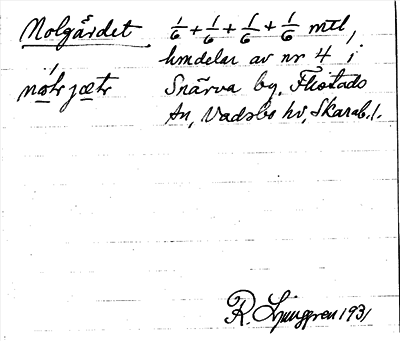 Nolgärdet 1/6 + 1/6 + 1/6 + 1/6 mtl,
hmdelar av nr 4 i
Snärva by, Flistads
sn, Vadsbo hd, Skarab.l.
R. Ljunggren 1931